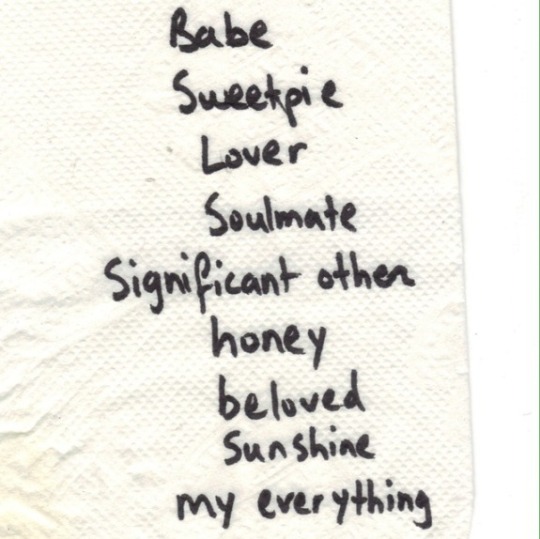 Babe
Sweetpie
Lover
Soulmate
Significant other
honey
beloved
Sunshine
my everything